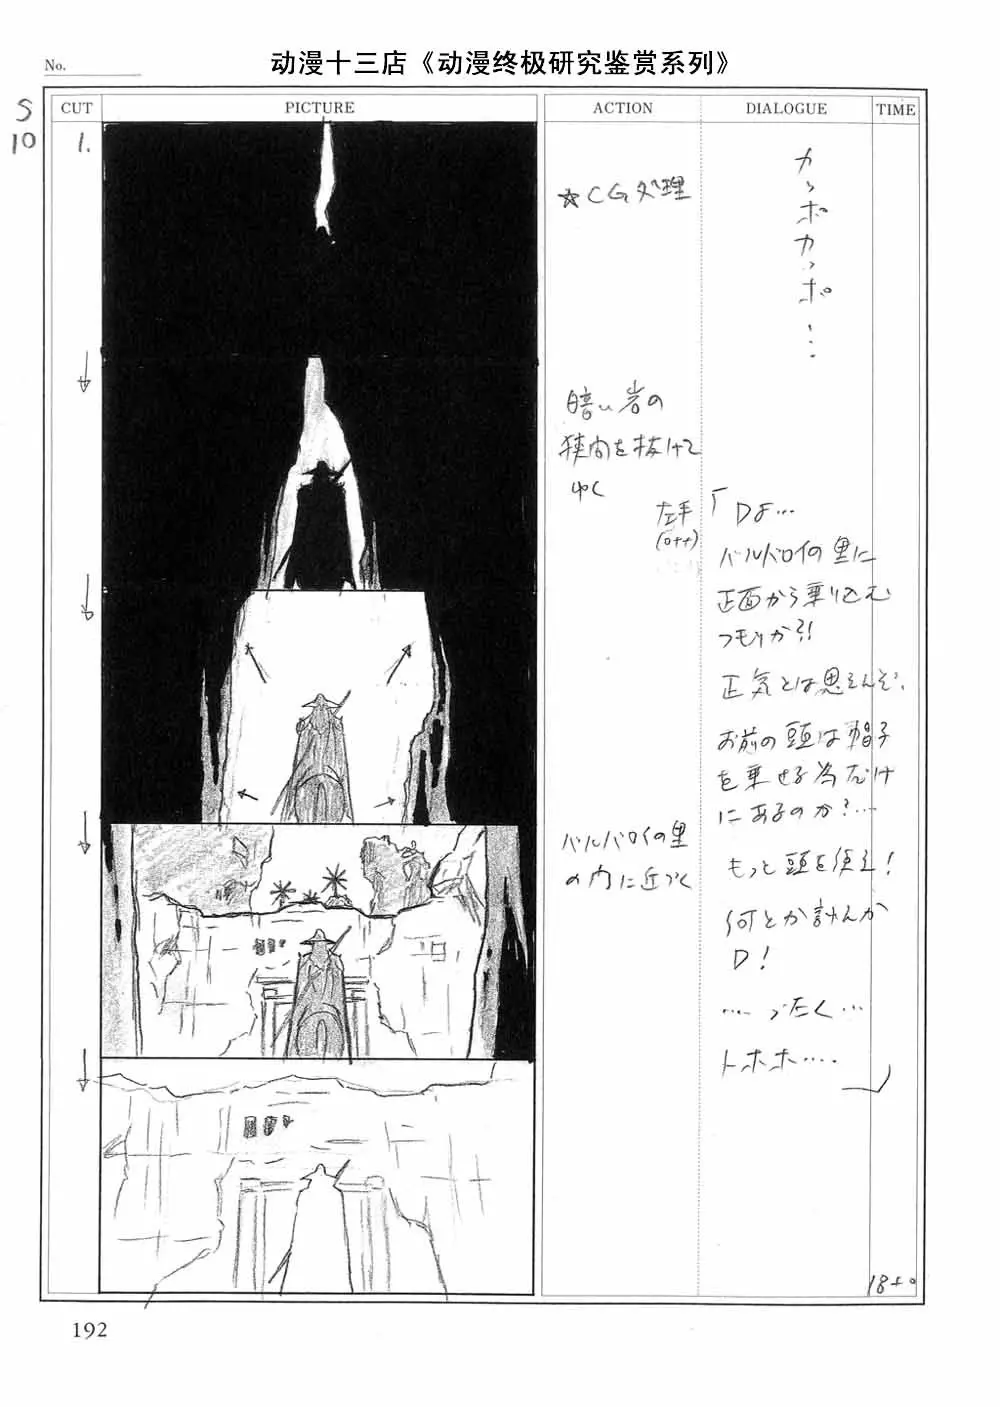 No.
动漫十三店《动漫终极研究鉴赏系列》
S
10
CUT
PICTURE
ACTION
DIALOGUE
TIME
1.
☆CG処理
カッポカッポ…
暗い岩の
狭間を抜けて
ゆく
左手
(off)
「Dよ…
バルバロイの里に
正面から乗り込む
つもりか?!
正気とは思えんぞ、
お前の頭は帽子
を乗せる為だけ
にあるのか?…
もっと頭を使え!
何とか言わんか
D!
……ったく…
トホホ….」
バルバロイの里
の内に近づく
18+0
192